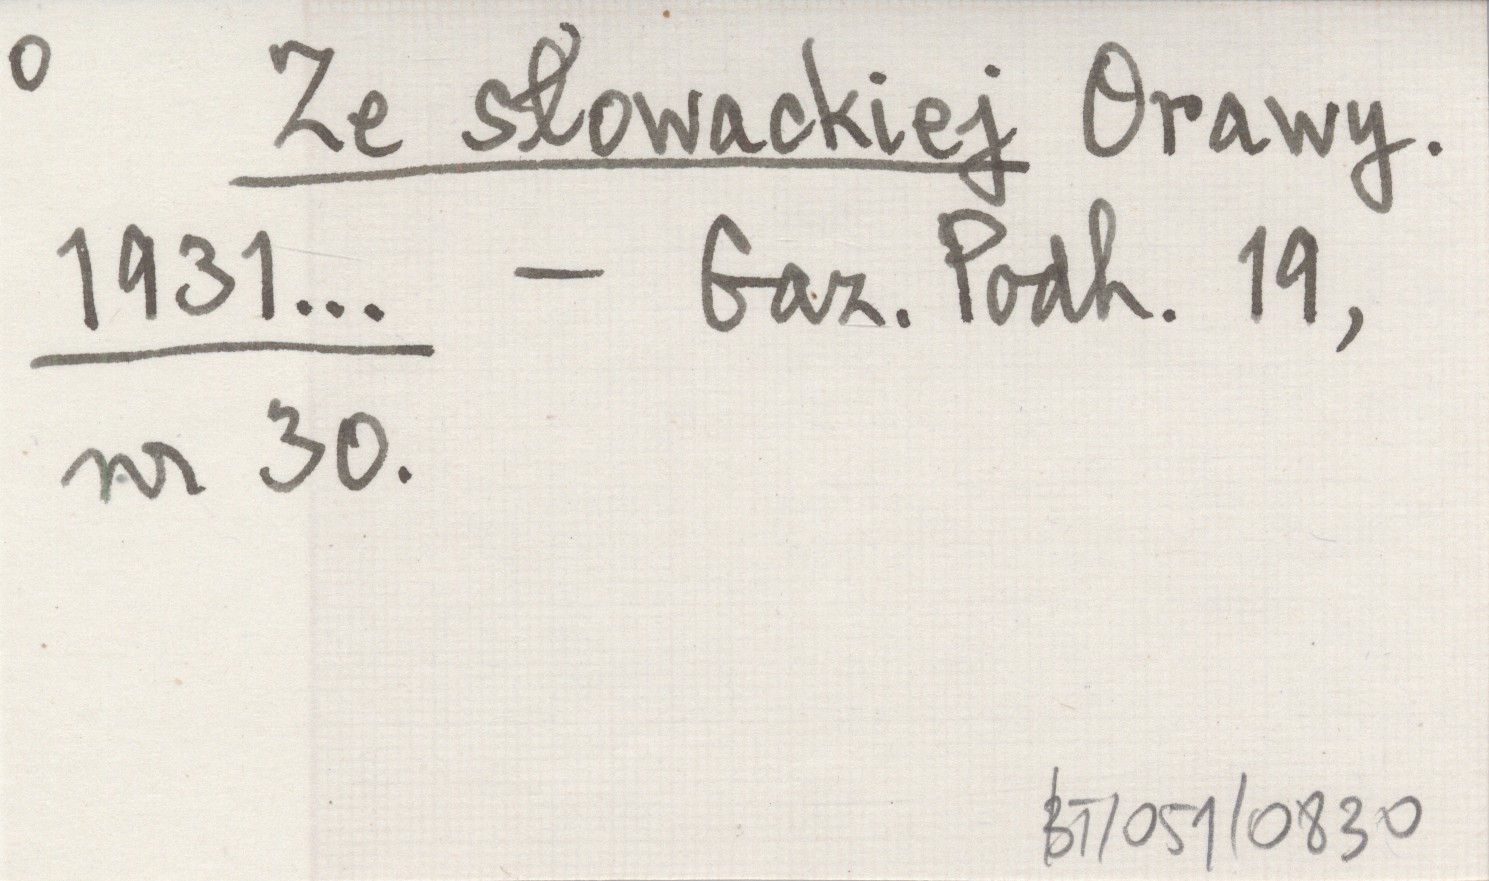 o Ze słowackiej Orawy.
1931... – Gaz. Podh. 19,
nr 30.
BT/051/0830